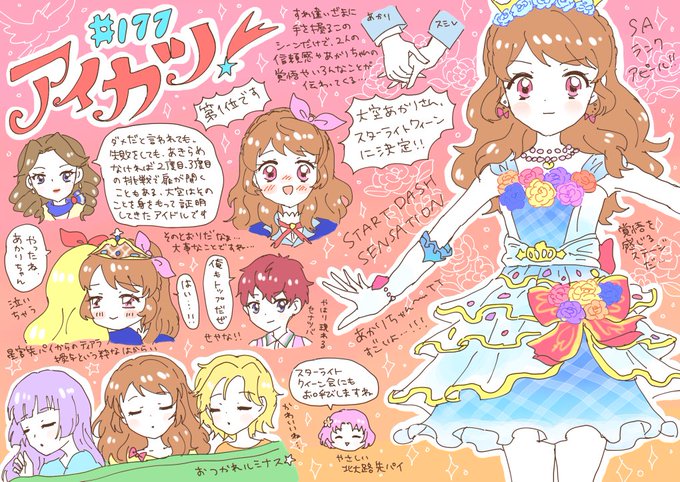 #177
アイカツ!
すれ違いざまに
手を握るこの
シーンだけで、2人の
信頼感やあかりちゃんの
覚悟やいろんなことが
伝わってくる…
あかり
スミレ
SA
ランク
アピール!!
第1位です
大空あかりさん、
スターライトクイーン
に決定!!
ダメだと言われても、
失敗をしても、あきらめ
なければ2度目、3度目
の挑戦で扉が開く
こともある 大空はその
ことを身をもって証明
してきたアイドルです
そのとおりだなぁ…
大事なことですね…
START DASH
SENSATION
覚悟を
感じる
ステージ
だ…!!
やったね
あかりちゃん
泣い
ちゃう
はい…!!
俺もトップだぜ
せやな!!
やはり現れる
セナパイ
あかりちゃん〜TT
すごいよ…!!!
星宮先パイからのティアラ
授与という粋なはからい
スターライト
クイーン会にも
お呼びしますね
かわいいね
やさしい
北大路先パイ
おつかれルミナス☆